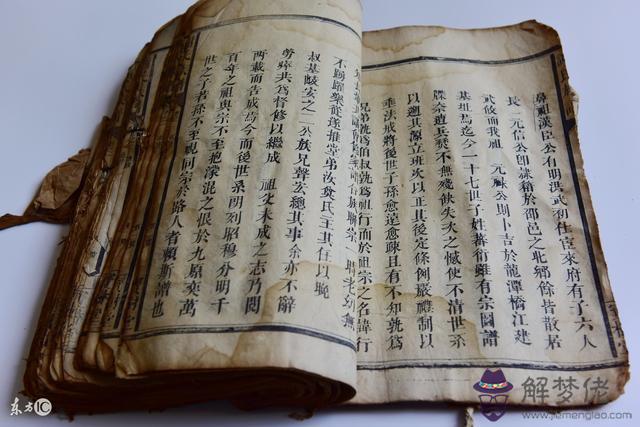 鼻祖漢臣公有明洪武初仕宦來府有子六人
長 元信公即隸籍於邵邑之北鄉餘皆散居
武攸而我祖 元祿公則卜吉於龍潭橋江建
基址焉迄今一十七世子姓蕃衍雖有宗圖譜
牒奈遊兵燹不無殘缺失火之憾使不清世系
以遡其源立班次以正其後定條例嚴禮制以
垂法戒將後世子孫愈遠愈疎且有不知孰爲
兄弟孰爲伯叔孰爲祖行而於祖宗之名諱行
聯宗一時老幼無
不踴躍樂從遂推堂弟汝 氏主其任以晚
叔基 安之二公族兄聲 總其事余亦不辭
勞瘁共爲督修以繼成 祖父未成之志乃閱
兩載而告成焉今而後世系明列昭穆分明千
百年之祖與宗不至抱蒙混之恨於九原奕萬
世之子若孫不至視同宗於路人者賴斯譜也
东方IC
解梦佬
www.jiemenglao.com